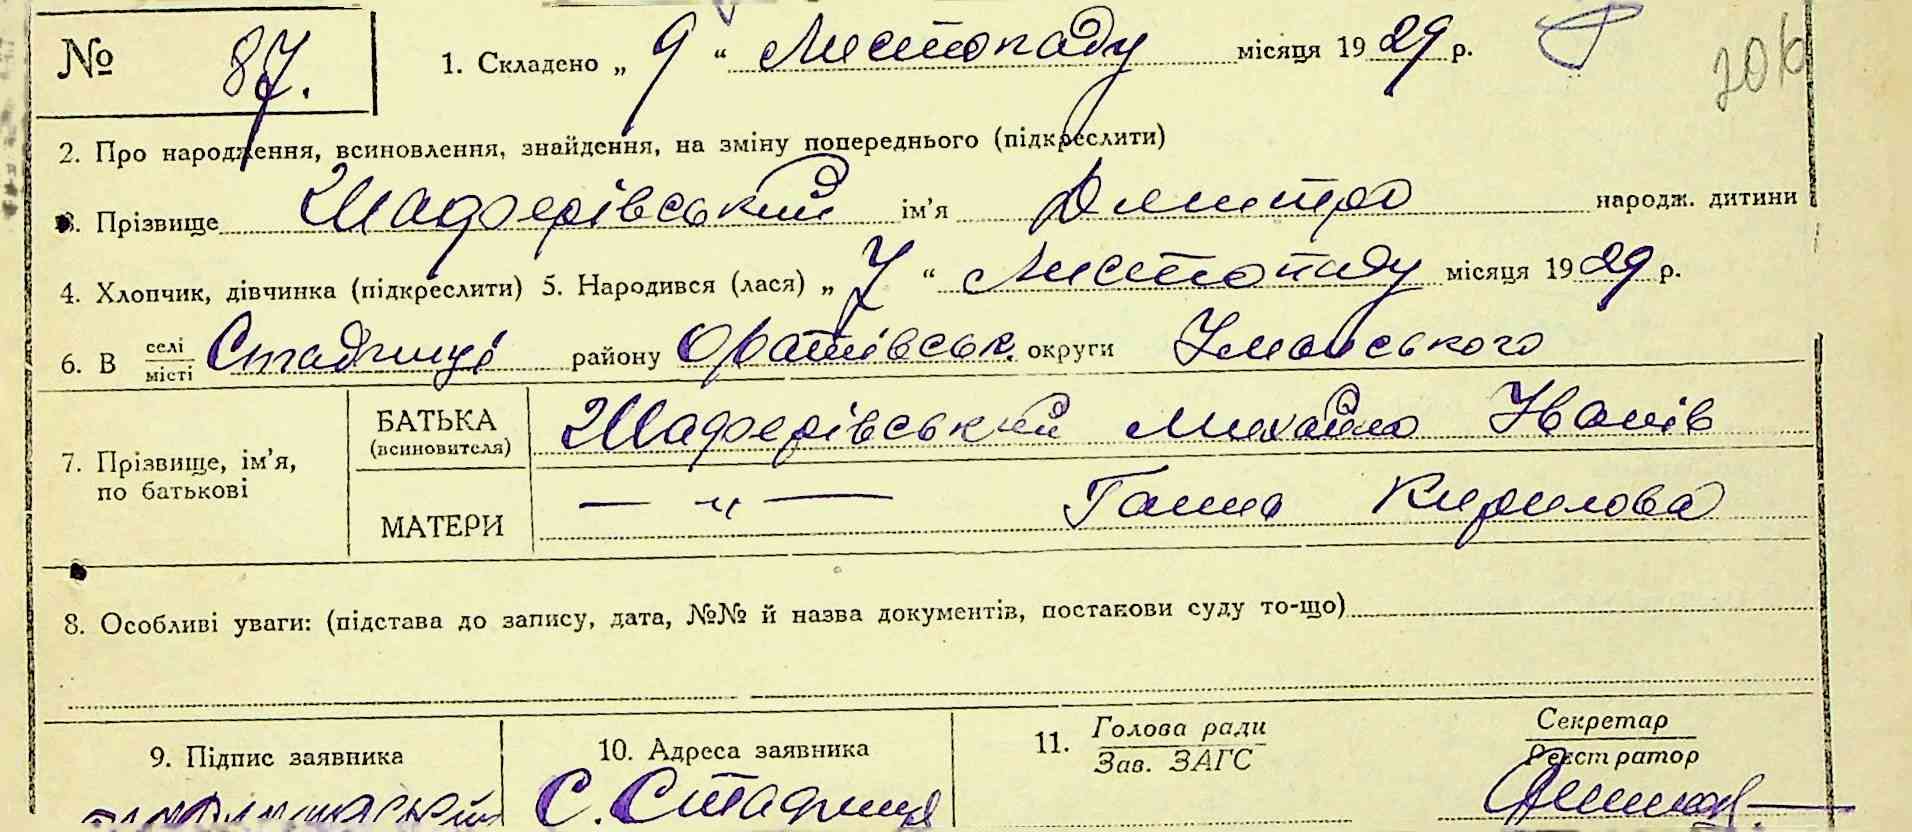 № 87. 1. Складено „ 9 “ Листопаду місяця 1929 р. 206
2. Про народження, всиновлення, знайдення, на зміну попереднього (підкреслити)
3. Прізвище Шафєрівський ім'я Дмитро народж. дитини
4. Хлопчик, дівчинка (підкреслити) 5. Народився (лася) „ 7 “ Листопаду місяця 1929 р.
6. В селі місті Стадниці району Оратівськ. округи Уманського
7. Прізвище, ім'я, по батькові
БАТЬКА (всиновителя) Шафєрівський Михайло Іванів
МАТЕРИ — „ — Ганна Кирилова
8. Особливі уваги: (підстава до запису, дата, №№ й назва документів, постакови суду то-що)
9. Підпис заявника 10. Адреса заявника 11. Голова ради Секретар
Зав. ЗАГС Реєстратор
С. Стадниця